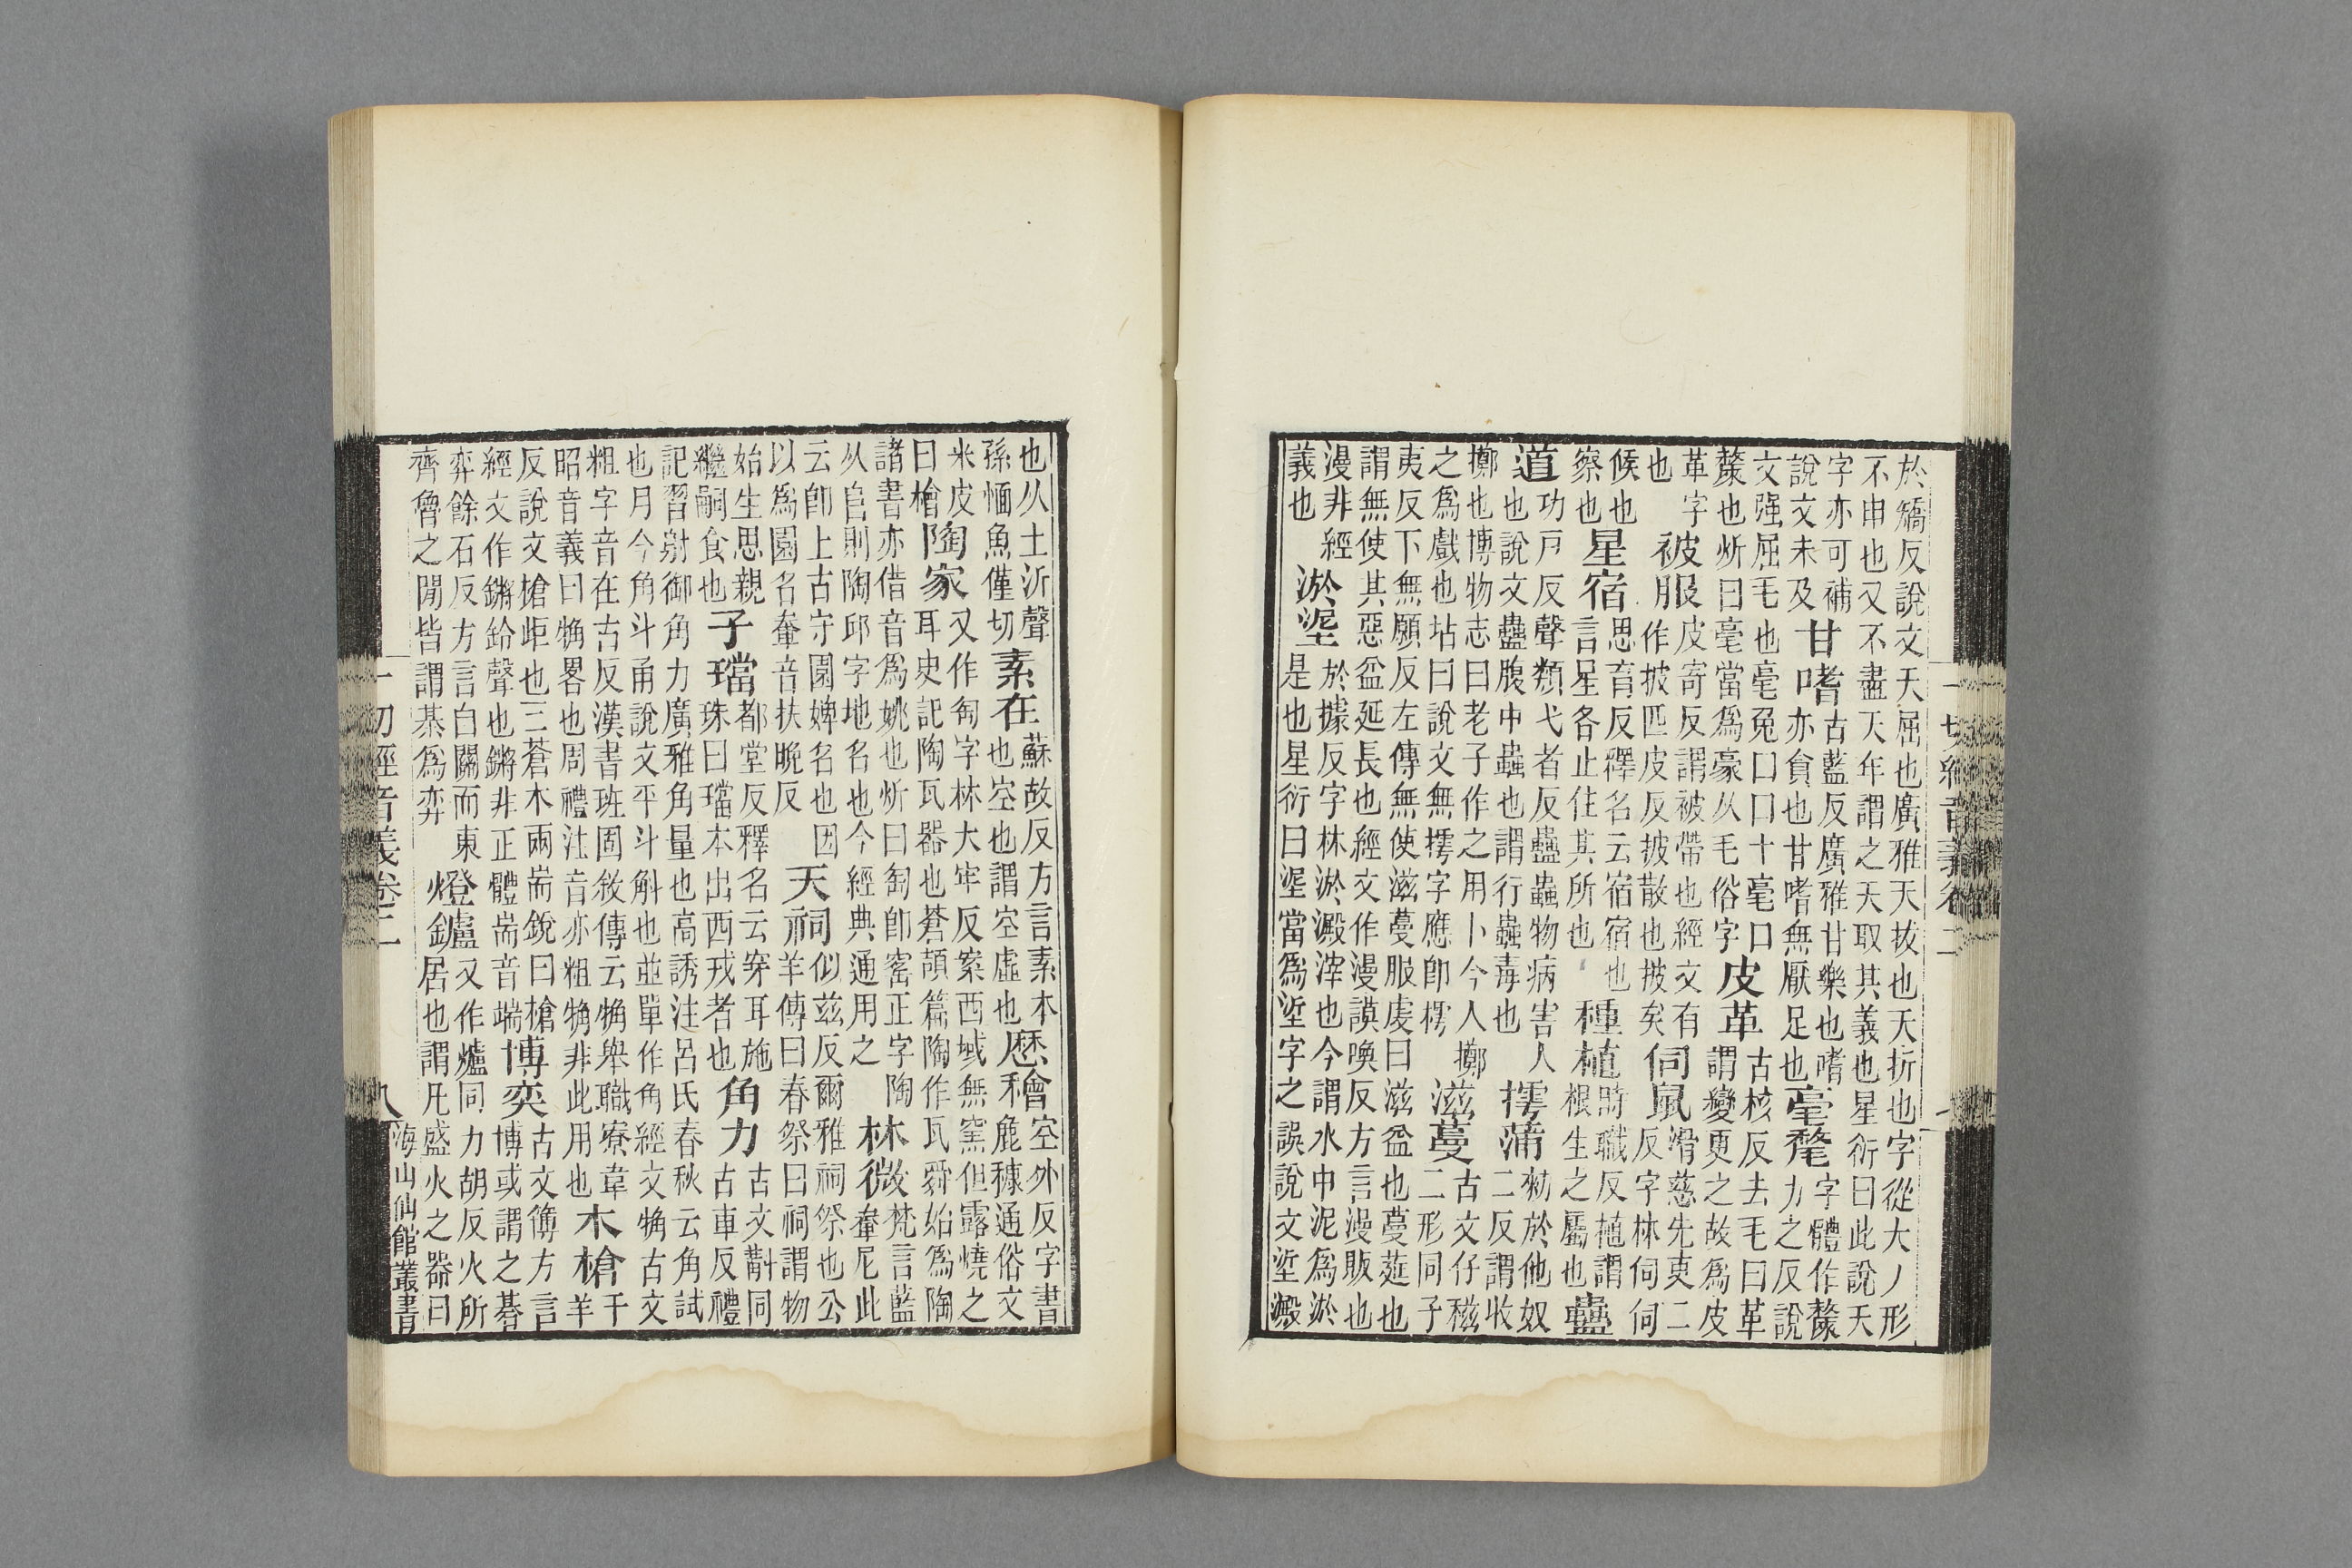 於矯反說文夭屈也廣雅夭拔也夭折也字從大丿形
不申也又不盡天年謂之夭取其義也星衍曰此說夭
字亦可補
說文未及
甘嗜
古藍反廣雅甘樂也嗜
亦貪也甘嗜無厭足也
毫氂
字體作氂
力之反說
文强屈毛也毫兔口口十毫口
氂也炘曰毫當爲豪从毛俗字
皮革
古核反去毛曰革
謂變更之故爲皮
革字
也
被服
皮寄反謂被帶也經文有
作披匹皮反披散也披矣
伺鼠
滑慈先吏二
反字林伺伺
候也
察也
星宿
思育反釋名云宿宿也
言星各止住其所也
種植
時職反植謂
根生之屬也
蠱
道
功戸反聲類弋者反蠱蟲物病害人
也說文蠱腹中蟲也謂行蟲毒也
摴蒲
勑於他奴
二反謂收
擲也博物志曰老子作之用卜今人擲
之爲戲也坫曰說文無摴字應卽樗
滋蔓
古文仔稵
二形同子
夷反下無願反左傳無使滋蔓服虔曰滋益也蔓莚也
謂無使其惡益延長也經文作漫謨喚反方言漫販也
漫非經
義也
淤埿
於據反字林淤澱滓也今謂水中泥爲淤
是也星衍曰埿當爲垽字之誤說文垽澱
一切經音義卷二
也从土沂聲
孫愐魚僅切
素在
蘇故反方言素本
也空也謂空虛也
歷穭
空外反字書
麁穅通俗文
米皮
曰檜
陶家
又作匋字林大牢反案西域無窯但露燒之
耳史記陶瓦器也蒼頡篇陶作瓦舜始爲陶
諸書亦借音爲姚也炘曰匋卽窰正字陶
从𨸏則陶邱字地名也今經典通用之
林微
梵言藍
鞤尼此
云卽上古守園婢名也因
以爲園名鞤音扶晚反
天祠
似茲反爾雅祠祭也公
羊傳曰春祭曰祠謂物
始生思親
繼嗣食也
子璫
都堂反釋名云穿耳施
珠曰璫本出西戎者也
角力
古文斠同
古車反禮
記習射御角力廣雅角量也高誘注呂氏春秋云角試
也月今角斗甬說文平斗斛也並單作角經文牭古文
粗字音在古反漢書班固敘傳云牭舉職寮韋
昭音義曰牭畧也周禮注音亦粗牭非此用也
木槍
千羊
反說文槍歫也三蒼木兩耑銳曰槍
經文作鏘鉿聲也鏘非正體耑音端
博奕
古文簙方言
博或謂之棊
弈餘石反方言白關而東
齊魯之閒皆謂棊爲弈
燈鑪
又作爐同力胡反火所
居也謂凡盛火之器曰
一切經音義卷二
八
海山仙館叢書